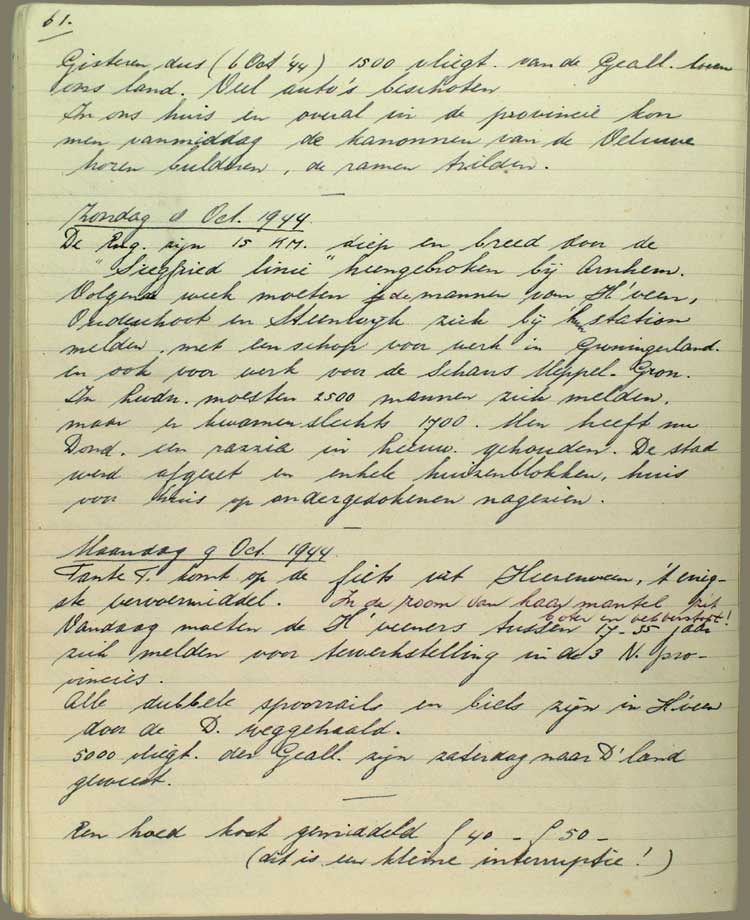 61.
Gisteren dus (6 Oct '44) 1500 vliegt. van de Geall. boven
ons land. Veel auto's beschoten
In ons huis en overal in de provincie kon
men vanmiddag de kanonnen van de Veluwe
horen bulderen, de ramen trilden.
Zondag 8 Oct. 1944.
De Eng. zijn 15 KM. diep en breed door de
"Siegfried linie" heengebroken bij Arnhem.
Volgende week moeten de mannen van H'veen,
Oudeschoot en Steenwijk zich bij 't station
melden, met een schop voor werk in Groningerland.
en ook voor werk voor de Schans Meppel-Gron.
In Lwdn. moesten 2500 mannen zich melden,
maar er kwamen slechts 1700. Men heeft nu
Dond. een razzia in Leeuw. gehouden. De stad
werd afgezet en enkele huizenblokken, huis
voor huis op ondergedokenen nagezien.
Maandag 9 Oct. 1944.
Tante T. komt op de fiets uit Heerenveen, 't enig-
ste vervoermiddel. In de zoom van haar mantel zit
boter en vet verstopt!
Vandaag moeten de H'veeners tussen 17-55 jaar
zich melden voor tewerkstelling in de 3 N. pro-
vincies.
Alle dubbele spoorrails en biels zijn in H'veen
door de D. weggehaald.
5000 vliegt. der Geall. zijn zaterdag naar D'land
geweest.
Een hoed kost gemiddeld ƒ 40 - ƒ 50 -
(dit is een kleine interruptie!)